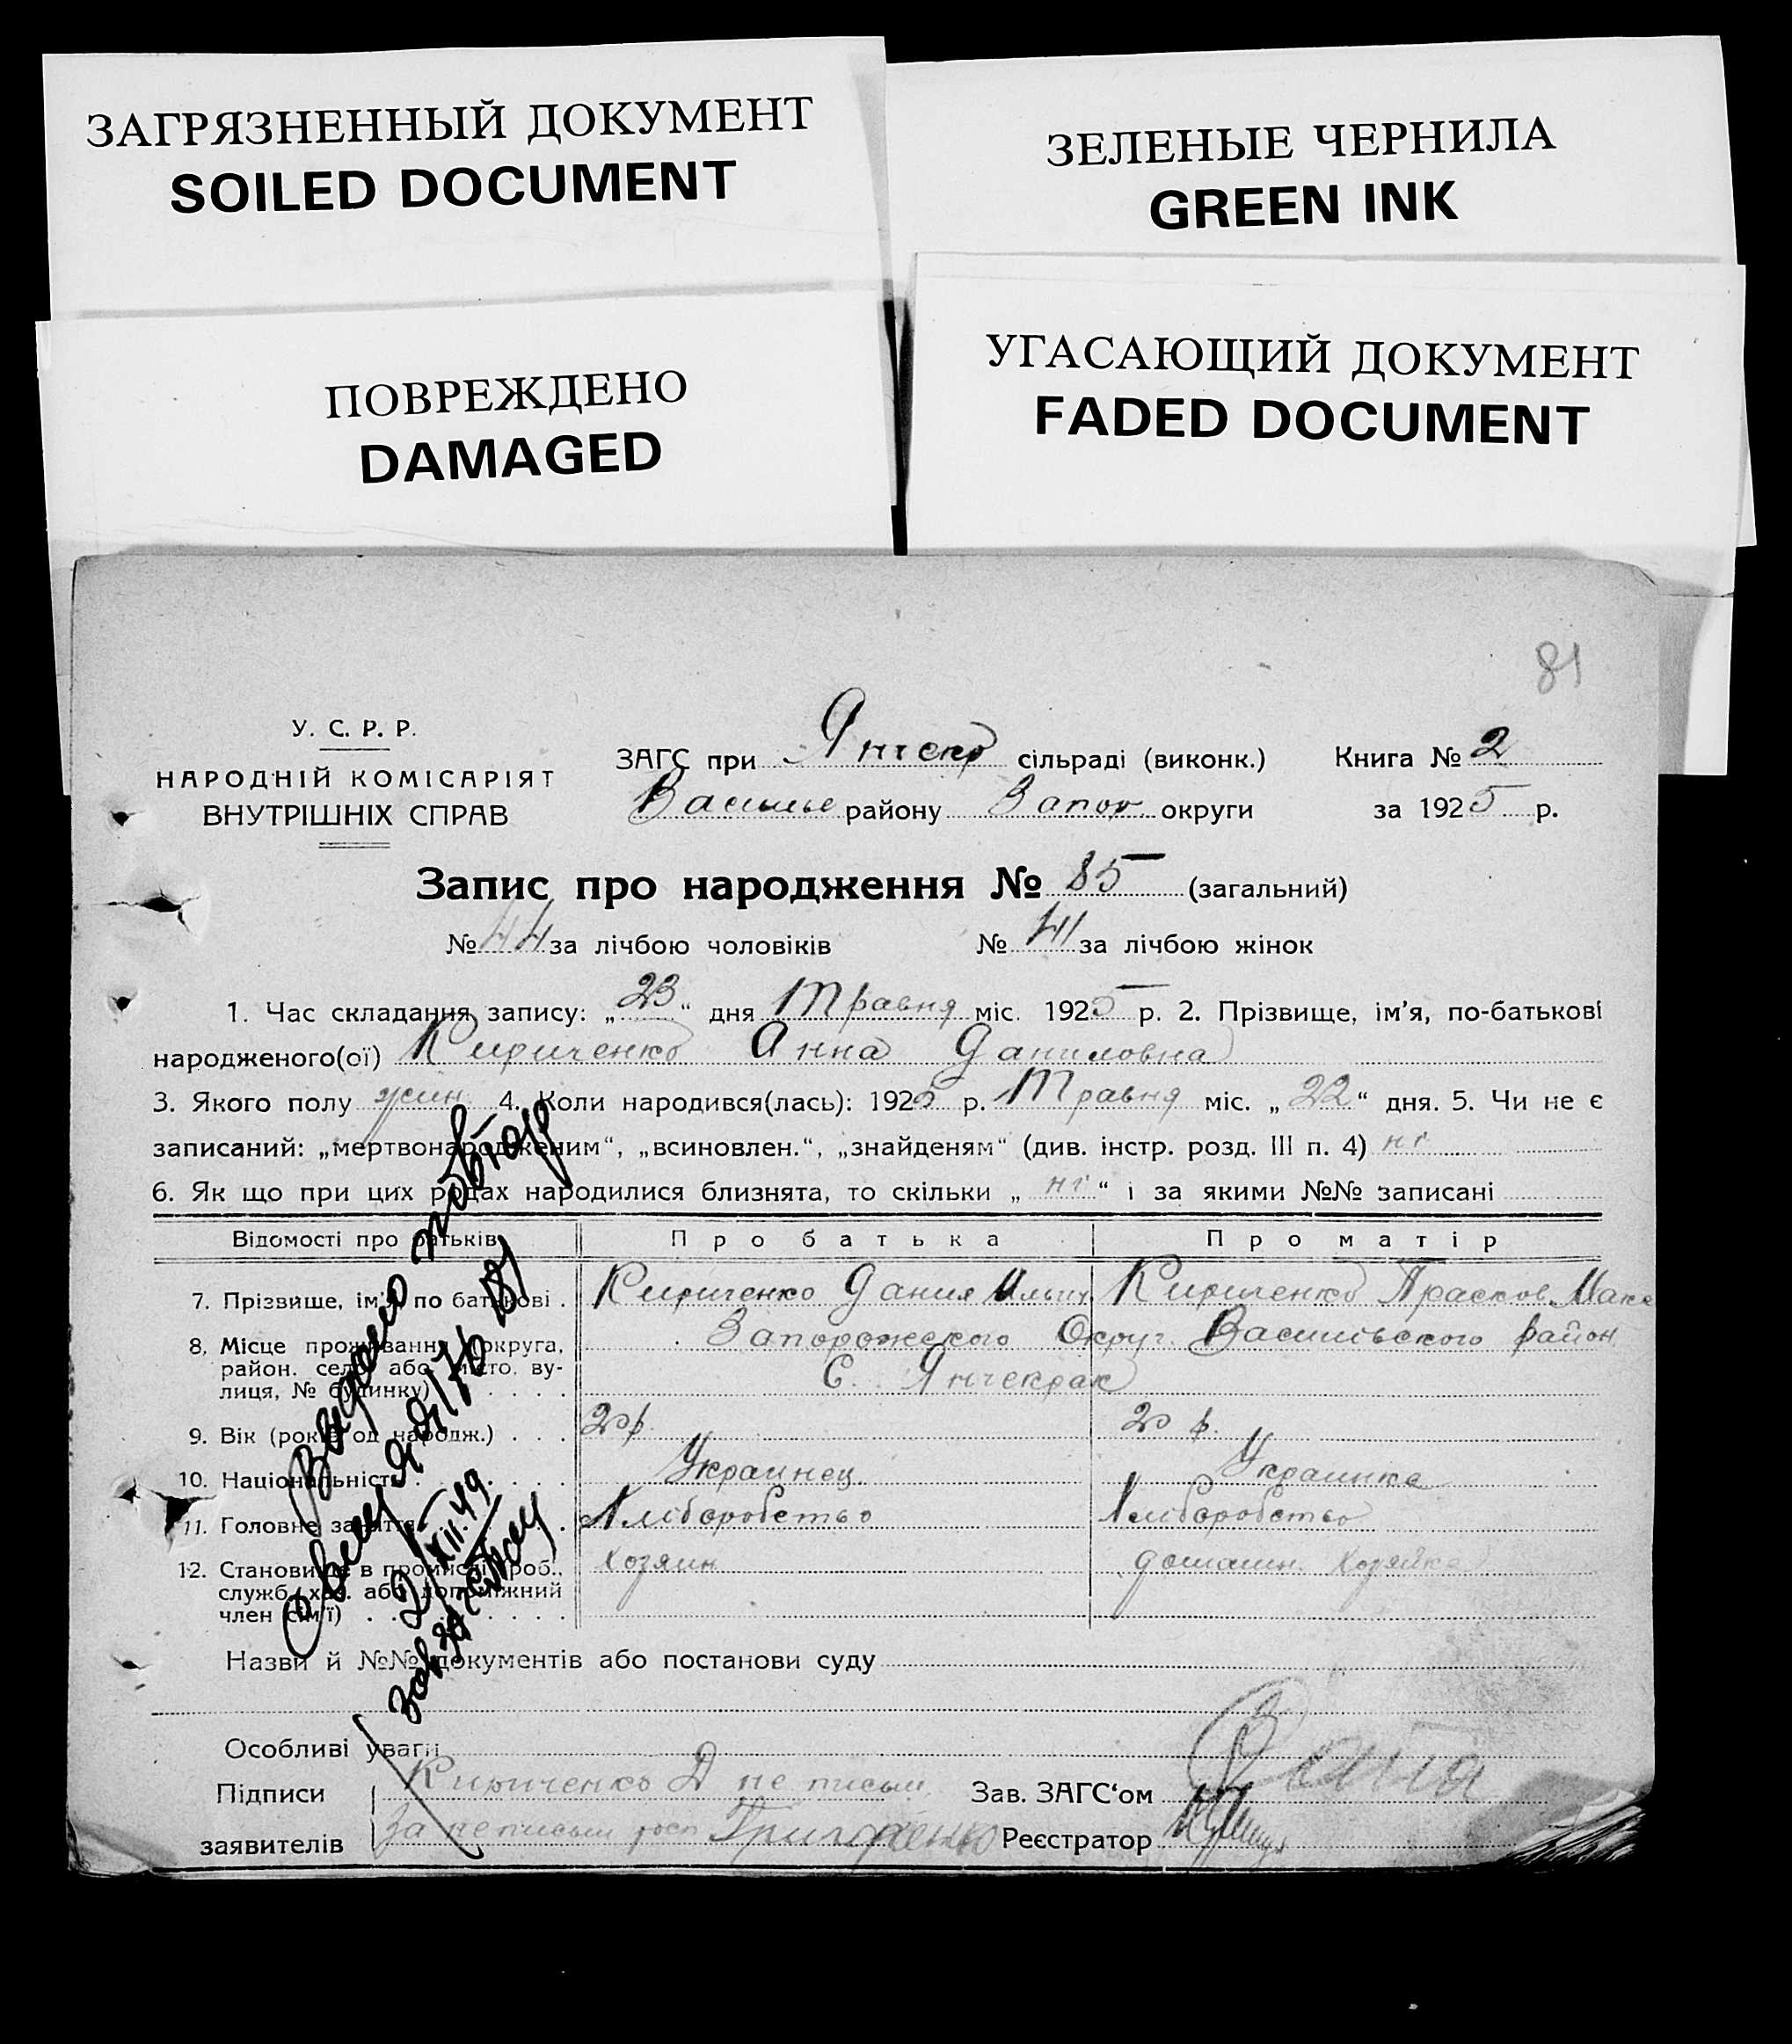 ЗАГРЯЗНЕННЫЙ ДОКУМЕНТ
SOILED DOCUMENT
ЗЕЛЕНЫЕ ЧЕРНИЛА
GREEN INK
ПОВРЕЖДЕНО
DAMAGED
УГАСАЮЩИЙ ДОКУМЕНТ
FADED DOCUMENT
81
У. С. Р. Р.
НАРОДНІЙ КОМІСАРІЯТ
ВНУТРІШНІХ СПРАВ
ЗАГС при Янчекр сільраді (виконк.) Книга № 2
Васильє району Запор. округи за 1925 р.
Запис про народження № 85 (загальний)
№ 44 за лічбою чоловіків № 41 за лічбою жінок
1. Час складання запису: „23“ дня Травня міс. 1925 р. 2. Прізвище, ім'я, по-батькові
народженого(ої) Кириченко Анна Даниловна
3. Якого полу жин. 4. Коли народився(лась): 1925 р. Травня міс. „22“ дня. 5. Чи не є
записаний: „мертвонародженим“, „всиновлен.“, „знайденям“ (див. інстр. розд. III п. 4) нг
6. Як що при цих родах народилися близнята, то скільки „нг“ і за якими №№ записані
Відомості про батьків Про батька Про матір
7. Прізвище, ім'я, по батькові . Кириченко Данил Ильич Кириченко Прасков. Мака
8. Місце проживання (округа, район. село або місто. вулиця, № будинку) Запорожского Округ. Василівського район
С. Янчекрак
9. Вік (років од народж.) . . . 20 р. 20 р.
10. Національність Украинец Украинка
11. Головне заняття Хліборобство Хліборобство
12. Становище в промислі (роб.,
служб., хаз. або допоміжний
член сім'ї) хозяин домашн. хозяйка
Назви й №№ документів або постанови суду
Особливі уваги
Підписи Кириченко Д не письм. Зав. ЗАГС‘ом
заявителів За неписьм росп Григоренко Реєстратор
Видано повтор
XII.49